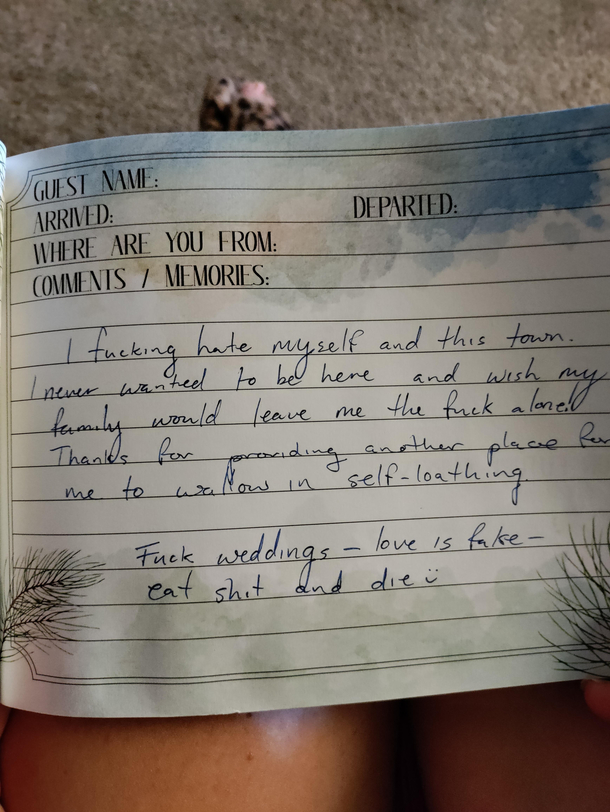 GUEST NAME:
ARRIVED: DEPARTED:
WHERE ARE YOU FROM:
COMMENTS / MEMORIES:
I fucking hate myself and this town.
I never wanted to be here and wish my
family would leave me the fuck alone!
Thanks for providing another place for
me to wallow in self-loathing.
Fuck weddings – love is fake –
eat shit and die ü